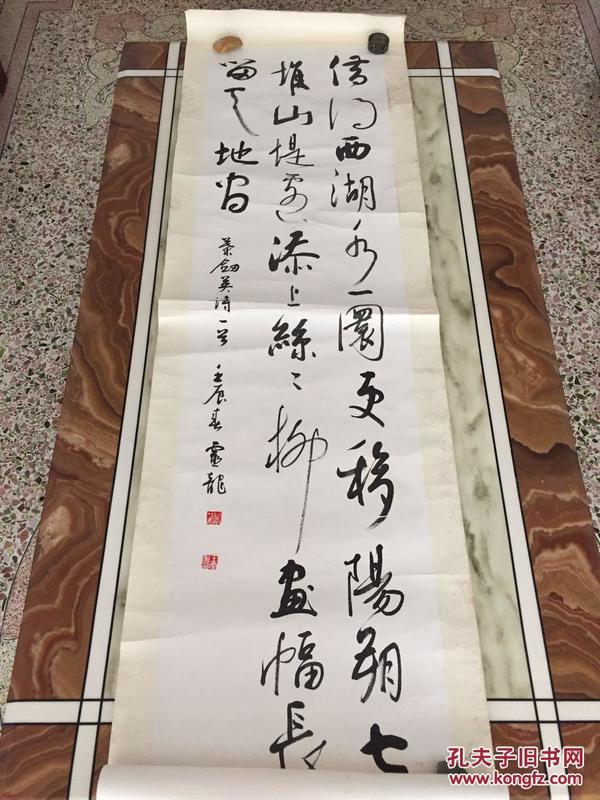 借得西湖水一圜更移陽朔七
堆山堤邊添上絲〻柳畫幅長
留天地間
葉劍英詩一首 壬辰春 龍
孔夫子旧书网
www.kongfz.com